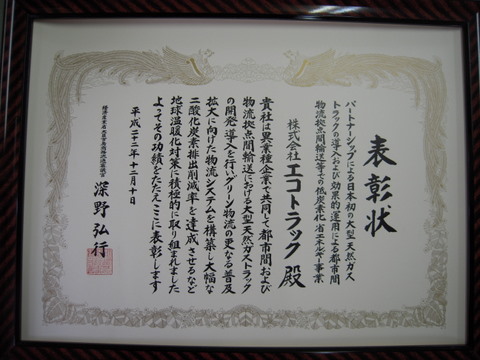 表彰状
パートナーシップによる日本初の大型天然ガス
トラックの導入および効果的運用による都市間
物流拠点間輸送等での低炭素化省エネルギー事業
株式会社エコトラック殿
貴社は異業種企業で共同で都市間および
物流拠点間輸送における大型天然ガストラック
の開発導入を行いグリーン物流の更なる普及
拡大に向けた物流システムを構築し大幅な
二酸化炭素排出削減率を達成させるなど
地球温暖化対策に積極的に取り組まれました
よってその功績をたたえここに表彰します
平成二十二年十二月十日
深野弘行